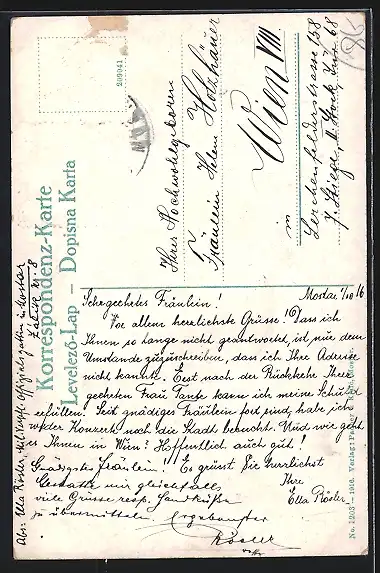 Korrespondenz-Karte
Levelező-Lap – Dopisna Karta
209041
Ihrer Hochwohlgeboren
Fräulein Helen Holzhäuer
Wien VIII
in
Lerchenfelderstrasse 158
Mostar 1/10 16
Sehrgeehrtes Fräulein!
Vor allem herzlichste Grüsse! Dass ich
Ihnen so lange nicht geantwortet, ist nur dem
Umstande zuzuschreiben, dass ich Ihre Adresse
nicht kannte. Erst nach der Rückkehr Ihrer
geehrten Frau Tante kann ich meine Schuld
erfüllen. Seit gnädiges Fräulein fort sind, habe ich
weder Konzerte noch die Stadt besucht. Und wie geht
es Ihnen in Wien? Hoffentlich auch gut!
Gnädigstes Fräulein! Es grüsst Sie herzlichst
Gestatte mir gleichfalls Ihre
viele Grüsse resp. Handküsse Ella Rösler
zu übermitteln. Ergebenster
Rösler
Abs: Ella Rösler
in Mostar
No. 1203 – 1916. Verlag: